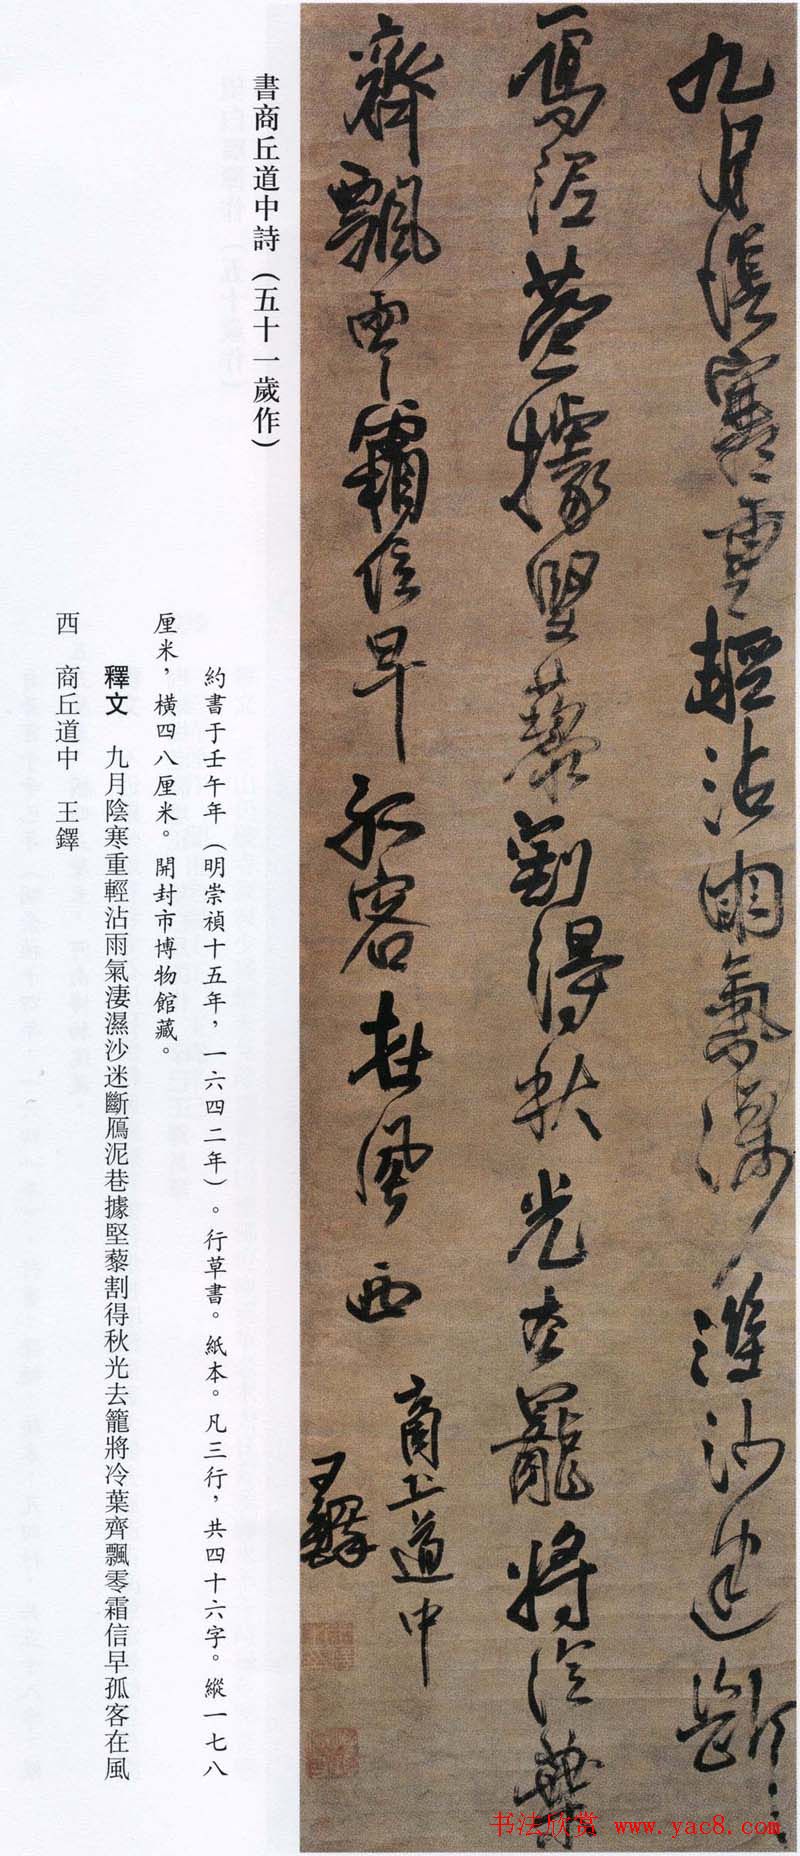 九月陰寒重輕沾雨氣淒濕沙迷斷
鴈泥巷據堅藜割得秋光去籠將冷葉
齊飄零霜信早孤客在風西
商丘道中
王鐸
書商丘道中詩(五十一歲作)
約書于壬午年(明崇禎十五年,一六四二年)。行草書。紙本。凡三行,共四十六字。縱一七八
厘米,橫四八厘米。開封市博物館藏。
釋文 九月陰寒重輕沾雨氣淒濕沙迷斷鴈泥巷據堅藜割得秋光去籠將冷葉齊飄零霜信早孤客在風
西 商丘道中 王鐸
书法欣赏 www.yac8.com